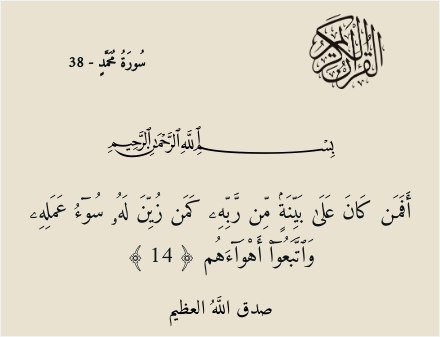 القرآن الكريم
سُورَةُ مُحَمَّدٍ - 38
بِسْمِ اللَّهِ الرَّحْمَٰنِ الرَّحِيمِ
أَفَمَن كَانَ عَلَىٰ بَيِّنَةٍ مِّن رَّبِّهِۦ كَمَن زُيِّنَ لَهُۥ سُوٓءُ عَمَلِهِۦ
وَٱتَّبَعُوٓا۟ أَهْوَآءَهُم ﴿ 14 ﴾
صدق اللَّهُ العظيم